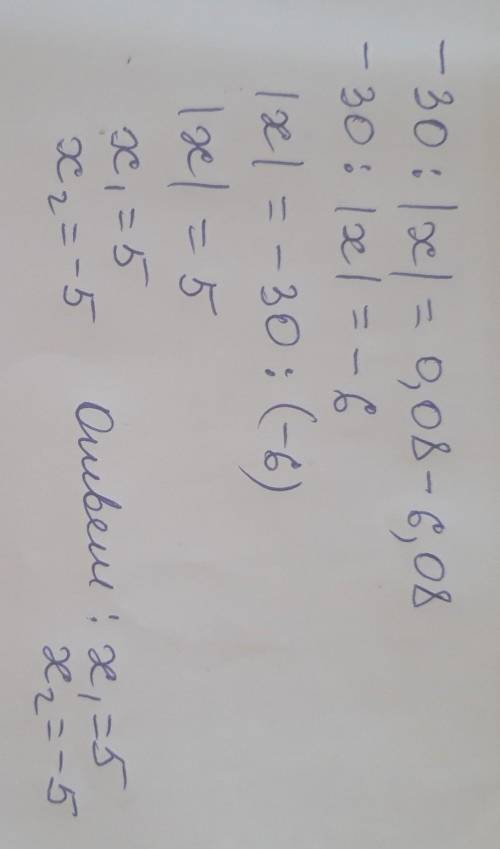 -30 : |x| = 0,08 - 6,08
-30 : |x| = -6
|x| = -30 : (-6)
|x| = 5
x₁ = 5
x₂ = -5
Ответ : x₁ = 5
x₂ = -5